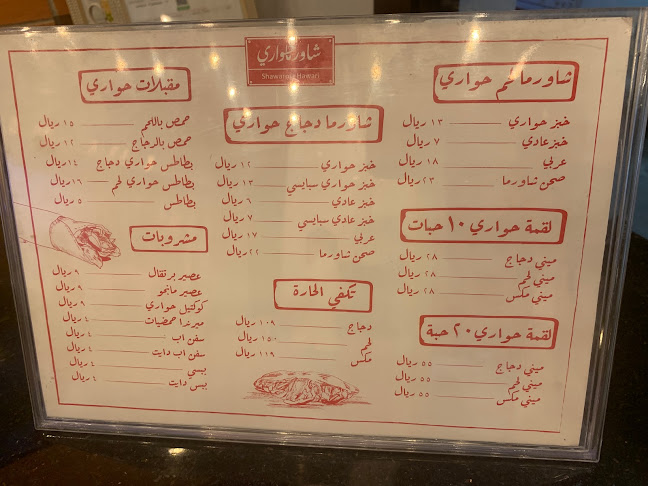 شاورما حواري
Shawarma Hawari
شاورما لحم حواري
خبز حواري ١٣ ريال
خبز عادي ٧ ريال
عربي ١٨ ريال
صحن شاورما ٢٣ ريال
لقمة حواري ١٠ حبات
ميني دجاج ٢٨ ريال
ميني لحم ٢٨ ريال
ميني مكس ٢٨ ريال
لقمة حواري ٢٠ حبة
ميني دجاج ٥٥ ريال
ميني لحم ٥٥ ريال
ميني مكس ٥٥ ريال
شاورما دجاج حواري
خبز حواري ١٢ ريال
خبز حواري سبايسي ١٣ ريال
خبز عادي ٦ ريال
خبز عادي سبايسي ٧ ريال
عربي ١٧ ريال
صحن شاورما ٢٢ ريال
تكفي الحارة
دجاج ١٠٩ ريال
لحم ١٥٠ ريال
مكس ١١٩ ريال
مقبلات حواري
حمص باللحم ١٥ ريال
حمص بالدجاج ١٢ ريال
بطاطس حواري دجاج ١٤ ريال
بطاطس حواري لحم ١٦ ريال
بطاطس ٥ ريال
مشروبات
عصير برتقال ٩ ريال
عصير مانجو ٩ ريال
كوكتيل حواري ٩ ريال
ميرندا حمضيات ٤ ريال
سفن اب ٤ ريال
سفن اب دايت ٤ ريال
بيبسي ٤ ريال
بيبس دايت ٤ ريال